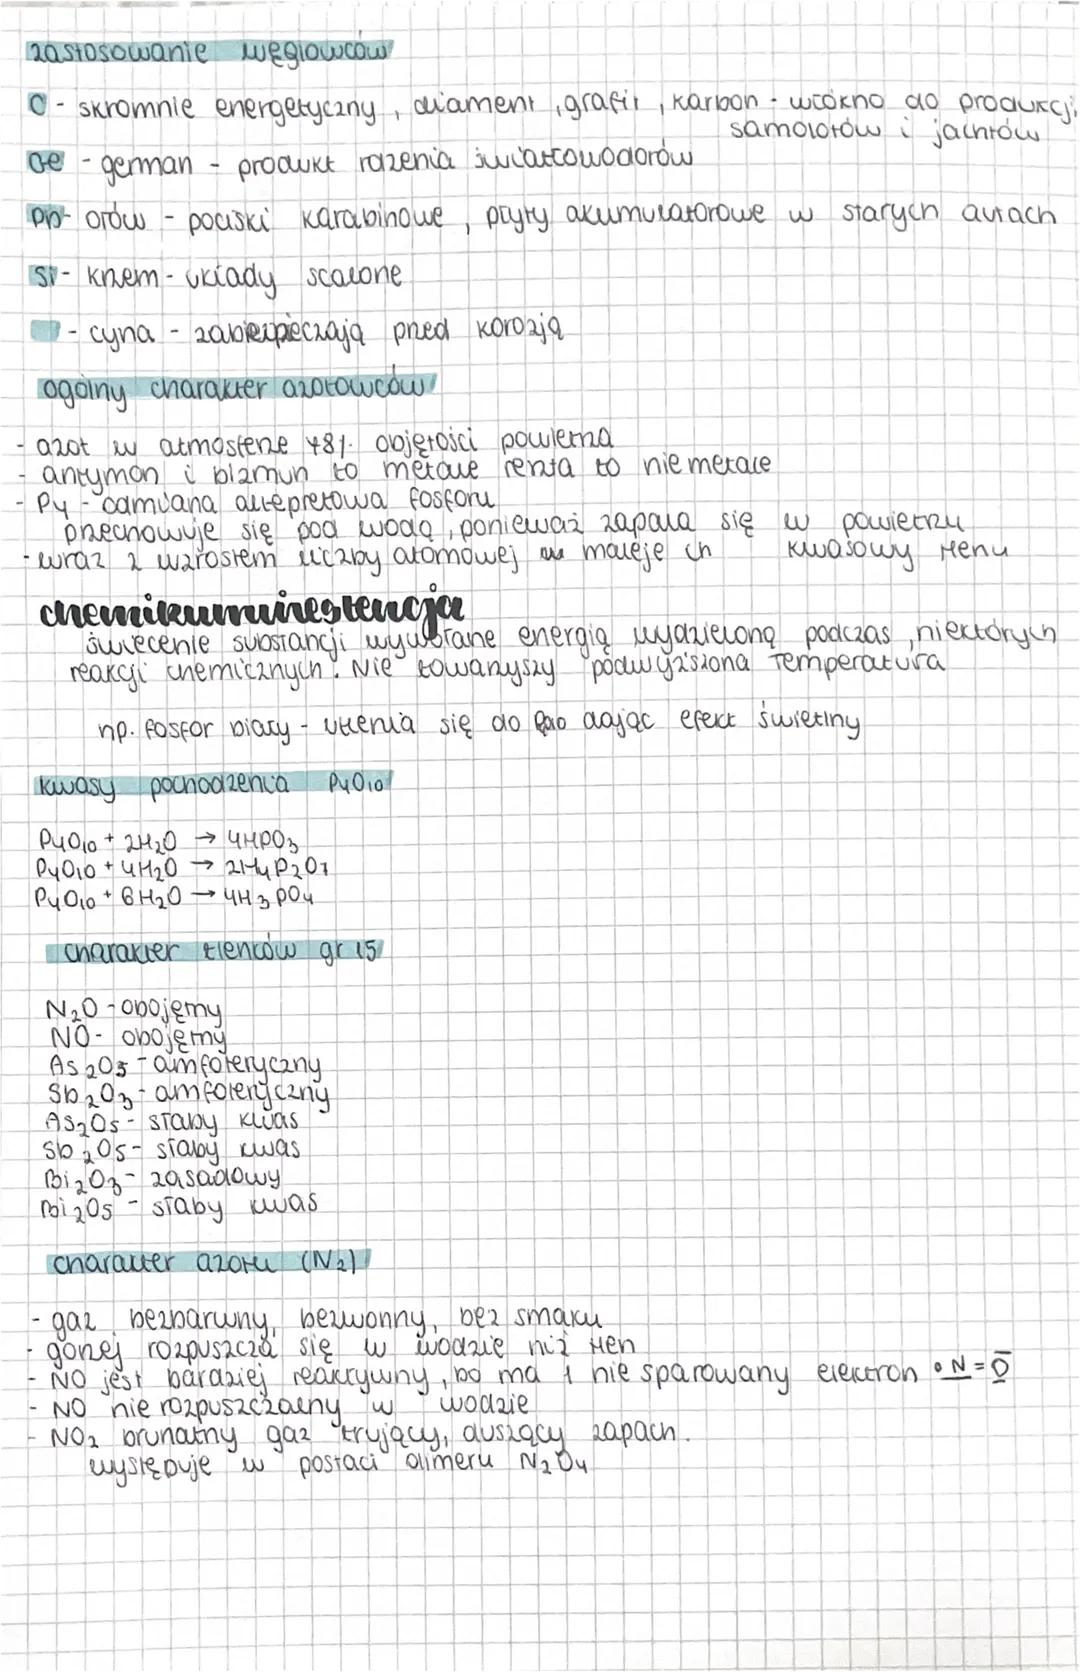 zastosowanie węglowców
C - skromnie energetyczny, diament, grafit, karbon - włókno do produkcji
samolotów i jachtów
Ge - german - produkt rdzenia światłowodorów
Pb - ołów - pociski karabinowe, płyty akumulatorowe w starych autach
Si - krzem - układy scalone
- cyna - zabezpieczają przed korozją
ogólny charakter azotowców
- azot w atmosferze 78% objętości powietrza
- antymon i bizmun to metale reszta to nie metale
- P4 - odmiana
fosforu
przechowuje się pod wodą, ponieważ zapala się w powietrzu
- wraz z wzrostem liczby atomowej maleje ch kwasowy tlenu
świecenie substancji wywołane energią wydzieloną podczas niektórych
reakcji chemicznych. Nie towarzyszy podwyższona temperatura
np. fosfor biały - utlenia się do dając efekt świetlny
kwasy pochodzenia P4O10
P4O10 + 2H2O → 4HPO3
P4O10 + 4H2O → 2H4P2O7
P4O10 + 6H2O → 4H3PO4
charakter tlenków gr 15
N2O - obojętny
NO - obojętny
As2O3 - amfoteryczny
Sb2O3 - amfoteryczny
As2O5 - słaby kwas
Sb2O5 - słaby kwas
Bi2O3 - zasadowy
Bi2O5 - słaby kwas
charakter azotu (N2)
- gaz bezbarwny, bezwonny, bez smaku
- gorzej rozpuszcza się w wodzie niż tlen
- NO jest bardziej reaktywny, bo ma 1 nie sparowany elektron •N=O
- NO nie rozpuszczalny w wodzie
- NO2 brunatny gaz trujący, duszący zapach.
występuje w postaci dimeru N2O4